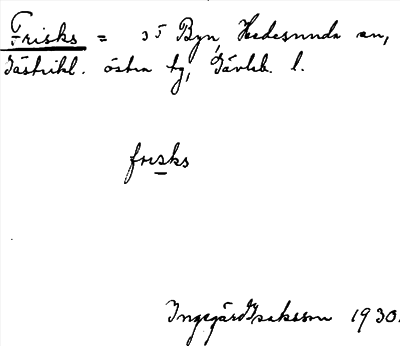 Frisks = 35 Byn, Hedesunda sn,
Gästrikl. östra tg, Gävleb. l.
frisks
Ingegärd Isaksson 1930.